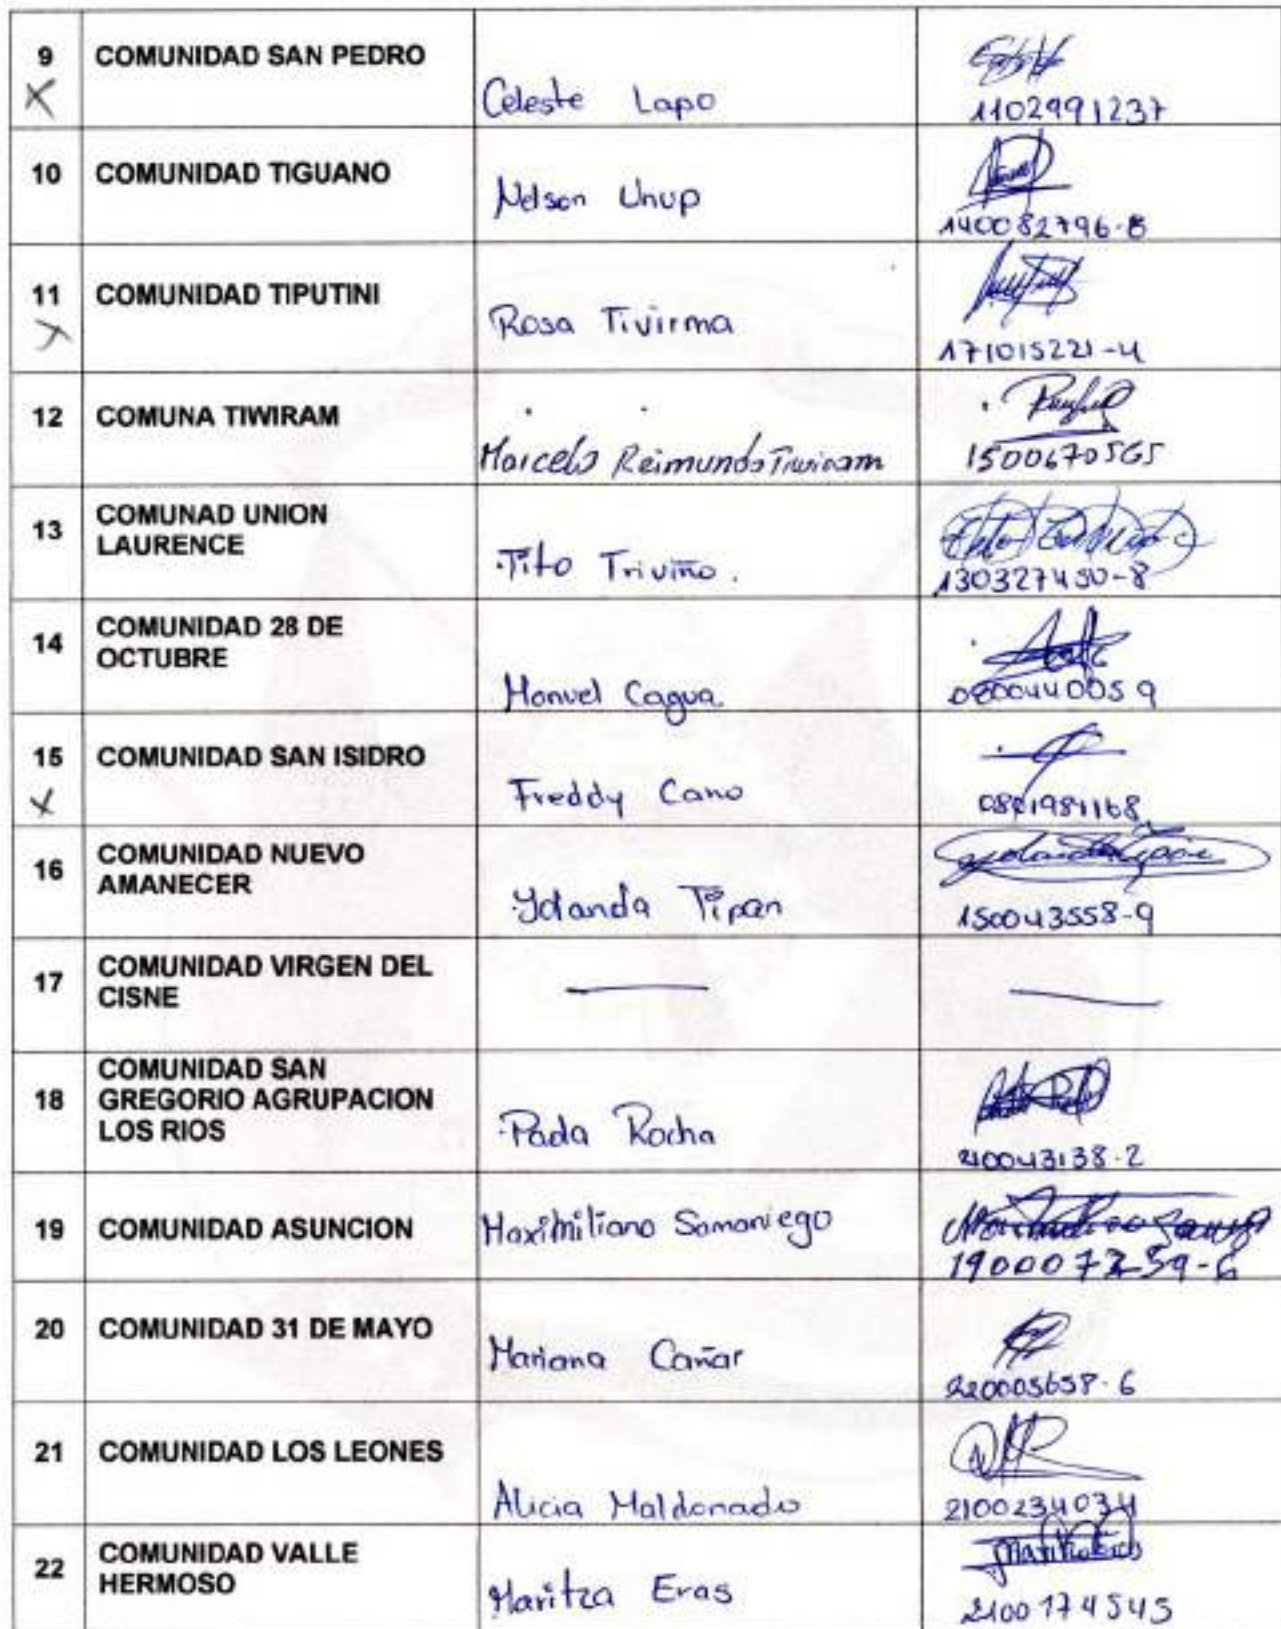 9 COMUNIDAD SAN PEDRO Celeste Lapo
X 1102991237
10 COMUNIDAD TIGUANO Nelson Unup
140082796-8
11 COMUNIDAD TIPUTINI Rosa Tivirma
X 171015221-4
12 COMUNA TIWIRAM Marcelo Reimundo Tiwiram
1500670565
13 COMUNAD UNION
LAURENCE Tito Triviño.
130327450-8
14 COMUNIDAD 28 DE
OCTUBRE Manuel Cagua
0800440059
15 COMUNIDAD SAN ISIDRO Freddy Cano
X
16 COMUNIDAD NUEVO
AMANECER Yolanda Tipan
150043558-9
17 COMUNIDAD VIRGEN DEL
CISNE
18 COMUNIDAD SAN
GREGORIO AGRUPACION
LOS RIOS Rocha
210043138-2
19 COMUNIDAD ASUNCION Maximiliano Samaniego
20 COMUNIDAD 31 DE MAYO Mariana Cañar
220005658-6
21 COMUNIDAD LOS LEONES Alicia Maldonado
2100234034
22 COMUNIDAD VALLE
HERMOSO Maritza Eras
2100174545